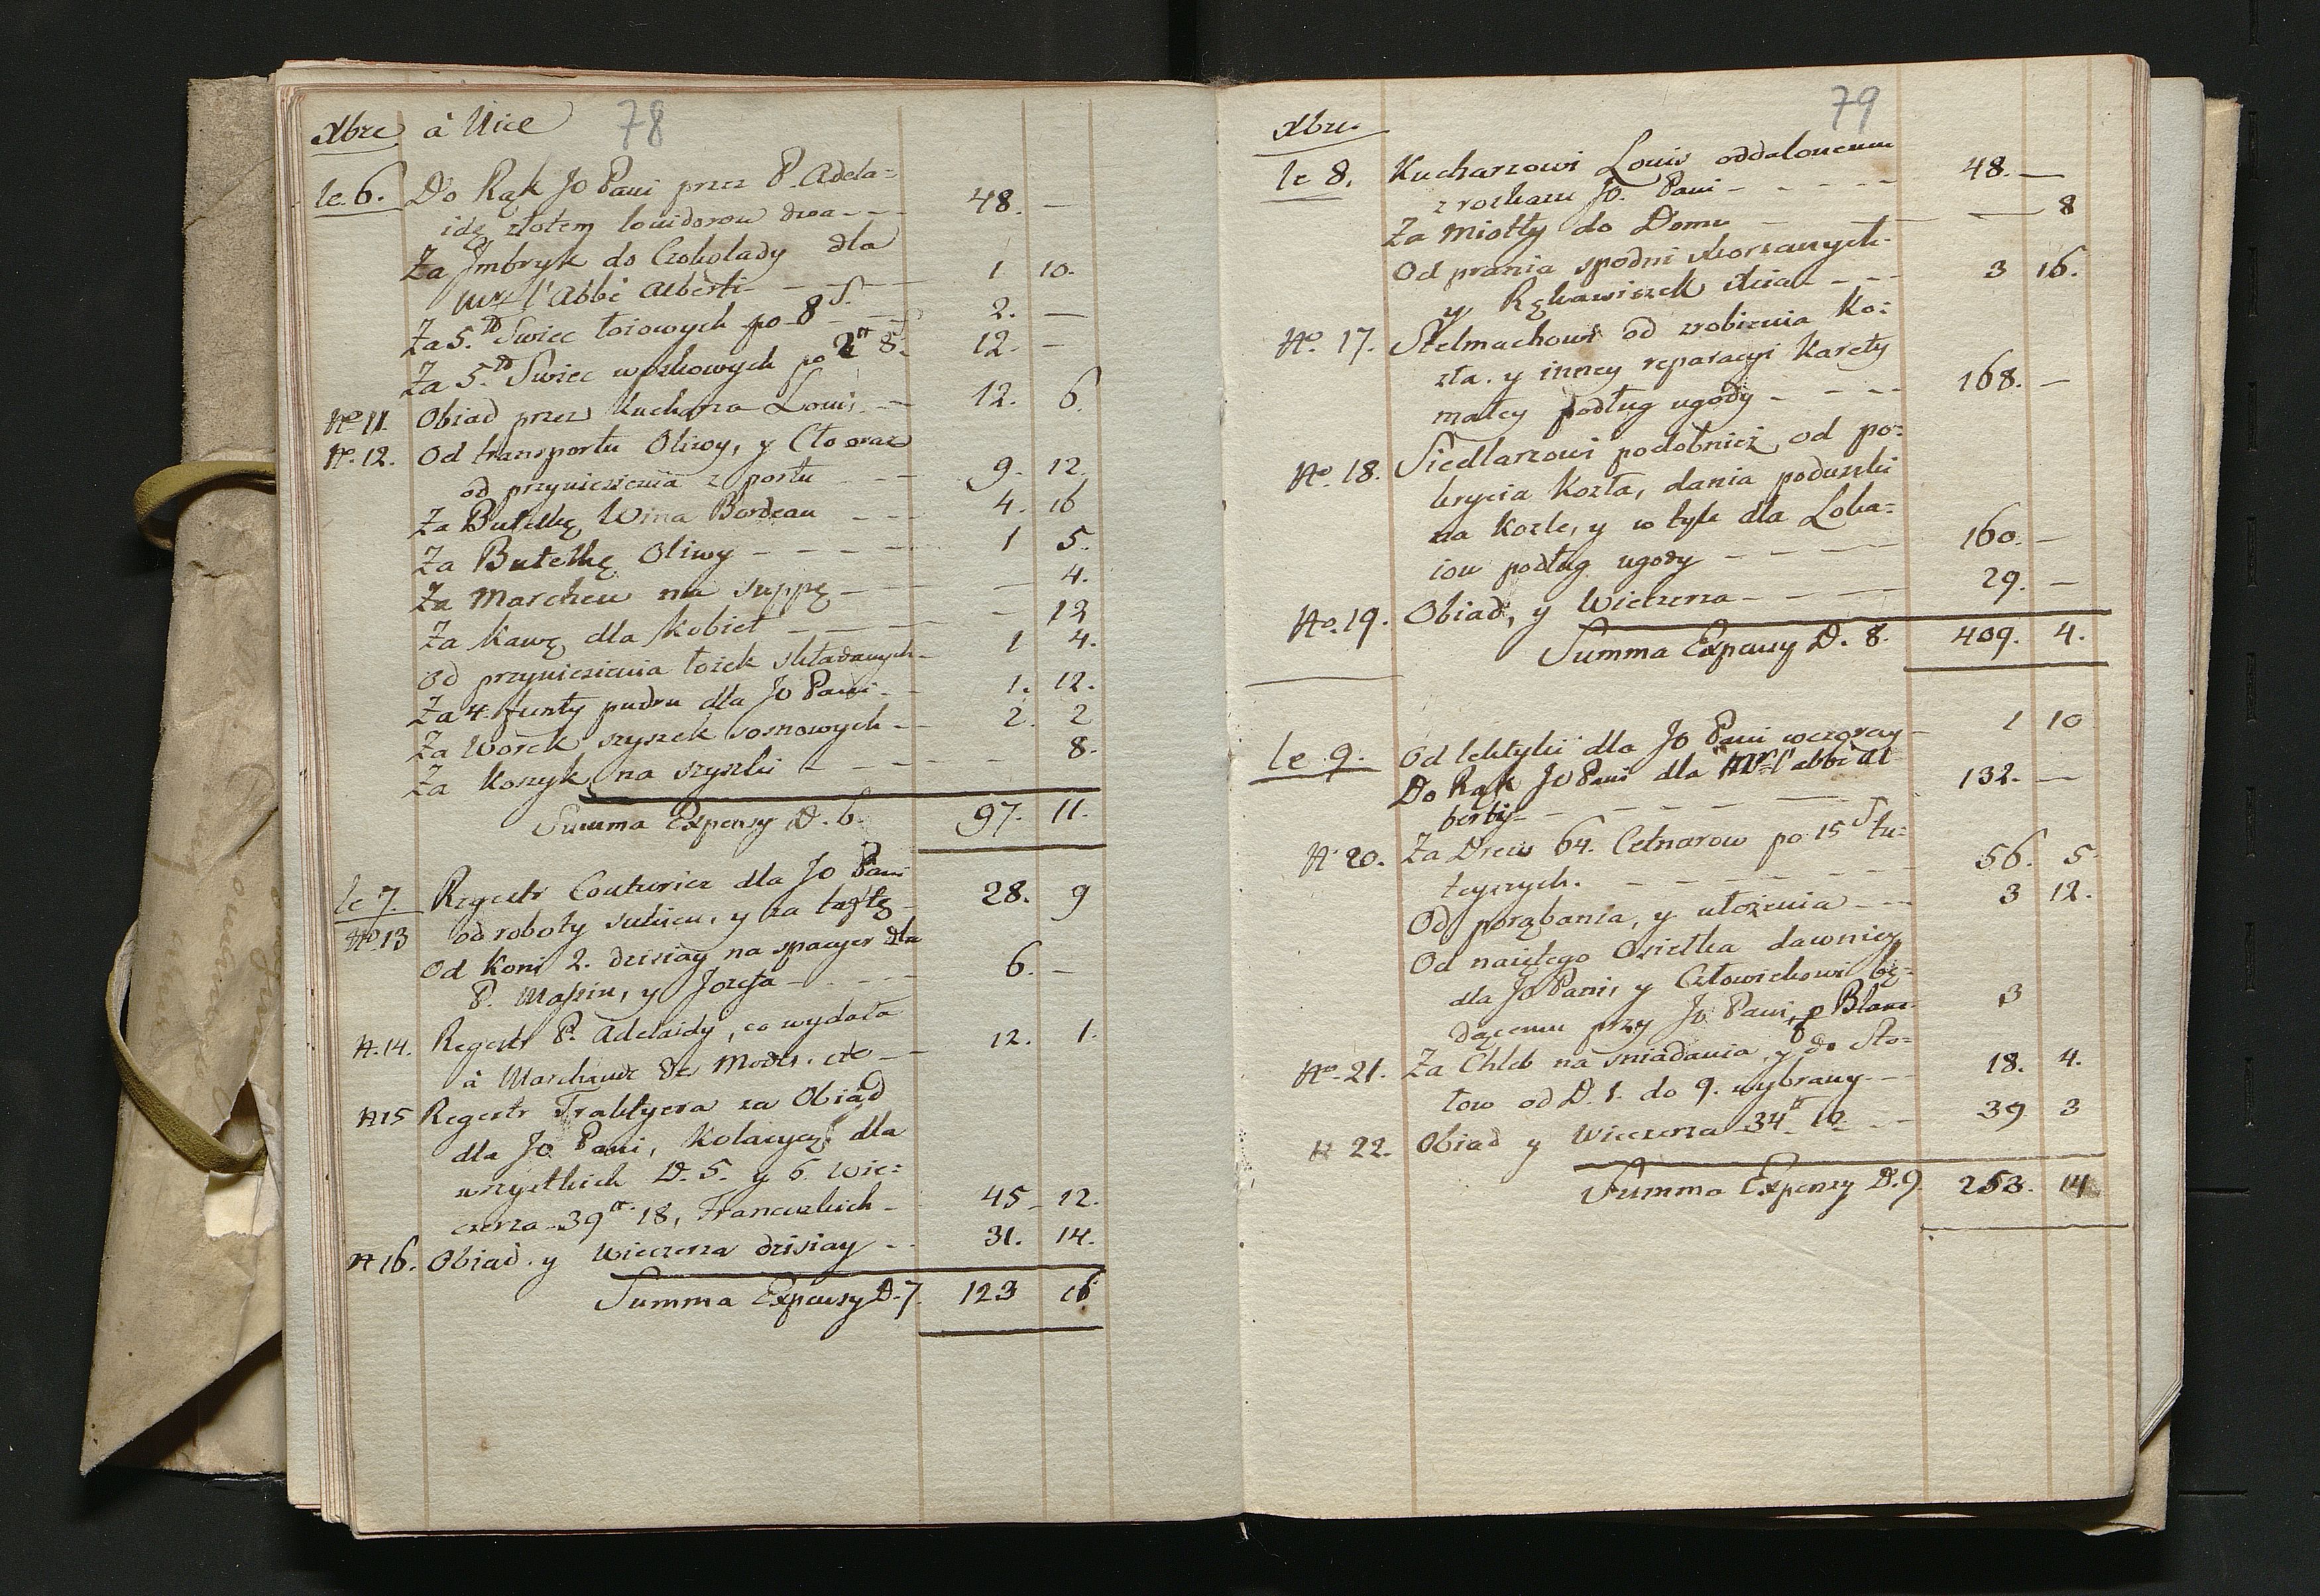 Xbre à Nice 78
le 6. Do Rąk Jo Pani przez P. Adela=
idę złotem louidorow dwa - - 48. —
Za Jmbryk do Czokolady dla
l'Abbé Alberti - - 1 10.
Za 5. ℔ Swiec łoiowych po 8 S. - 2. —
Za 5. ℔ Swiec woskowych po 2 tt 8 S. 12. —
No 11 Obiad przez Kucharza Louis - - 12. 6.
No. 12. Od transportu Oliwy, y Cło oraz
od przyniesienia z portu - - - 9. 12.
Za Butelkę Wina Bordeau - - - 4. 16
Za Butelkę Oliwy - - - - 1 5.
Za Marchew na suppę - - — 4.
Za Kawę dla Kobiet - - - - 12
Od przyniesienia łożek składanych - 1 4.
Za 4. funty pudru dla Jo Pani - - 1. 12.
Za Worek szyszek sosnowych - - 2. 2
Za Koszyk na szyszki - - - - - 8.
Summa Expensy D. 6. 97. 11.
le 7. Regestr Couturier dla Jo Pani
No 13 od roboty sukien, y za taftę - 28. 9
Od Koni 2. dzisiay na spacyer dla
P. Massin, y Jozefa - - - - 6. —
N. 14. Regestr P. Adelaidy, co wydała
à Marchande de Modes. etc - - 12. 1.
N 15 Regestr Traktyera za Obiad
dla Jo Pani, Kolacyę dla
wszystkich D. 5. y 6. Wie=
czerza - 39 tt. 18, Francuzkich - 45 - 12.
N 16. Obiad. y Wieczerza dzisiay - - 31. 14.
Summa Expensy D. 7. 123 16
79
Xbre.
le 8. Kucharzowi Louis oddalonemu
z rozkazu Jo. Pani - - - - - 48. —
Za Miotły do Domu - — — 8
Od prania spodni skorzanych
y Rękawiszek - - - 3 16.
No. 17. Stelmachowi od zrobienia Ko=
zła. y inney reparacyi Karety
małey podług ugody - - - - 168. —
No. 18. Siedlarzowi podobnież, od po=
krycia Kozła, dania poduszki
na Kozle, y w tyle dla Loka=
iow podług ugody - - — - 160. —
No. 19. Obiad, y Wieczerza - - - - 29. —
Summa Expensy D. 8. 409. 4.
le 9. Od lektyki dla Jo Pani wczoray - 1 10
Do Rąk Jo Pani dla Mr l'abbé Al
berty - - - - - — 132. —
N. 20. Za Drew 64. Cetnarow po 15 S tu=
teyszych. - - - - - - 56. 5.
Od porąbania, y ułożenia - - - 3 12.
Od naiętego Osiełka dawniey
dla Jo Pani, y Człowiekowi bę=
dącemu przy Jo Pani, p Blanc. 3
No. 21. Za Chleb na sniadania, y do Sto=
łow od D. 1. do 9. wybrany - - 18. 4.
N 22. Obiad y Wieczerza 34 tt 10 - - 39 3
Summa Expensy D. 9. 253. 14